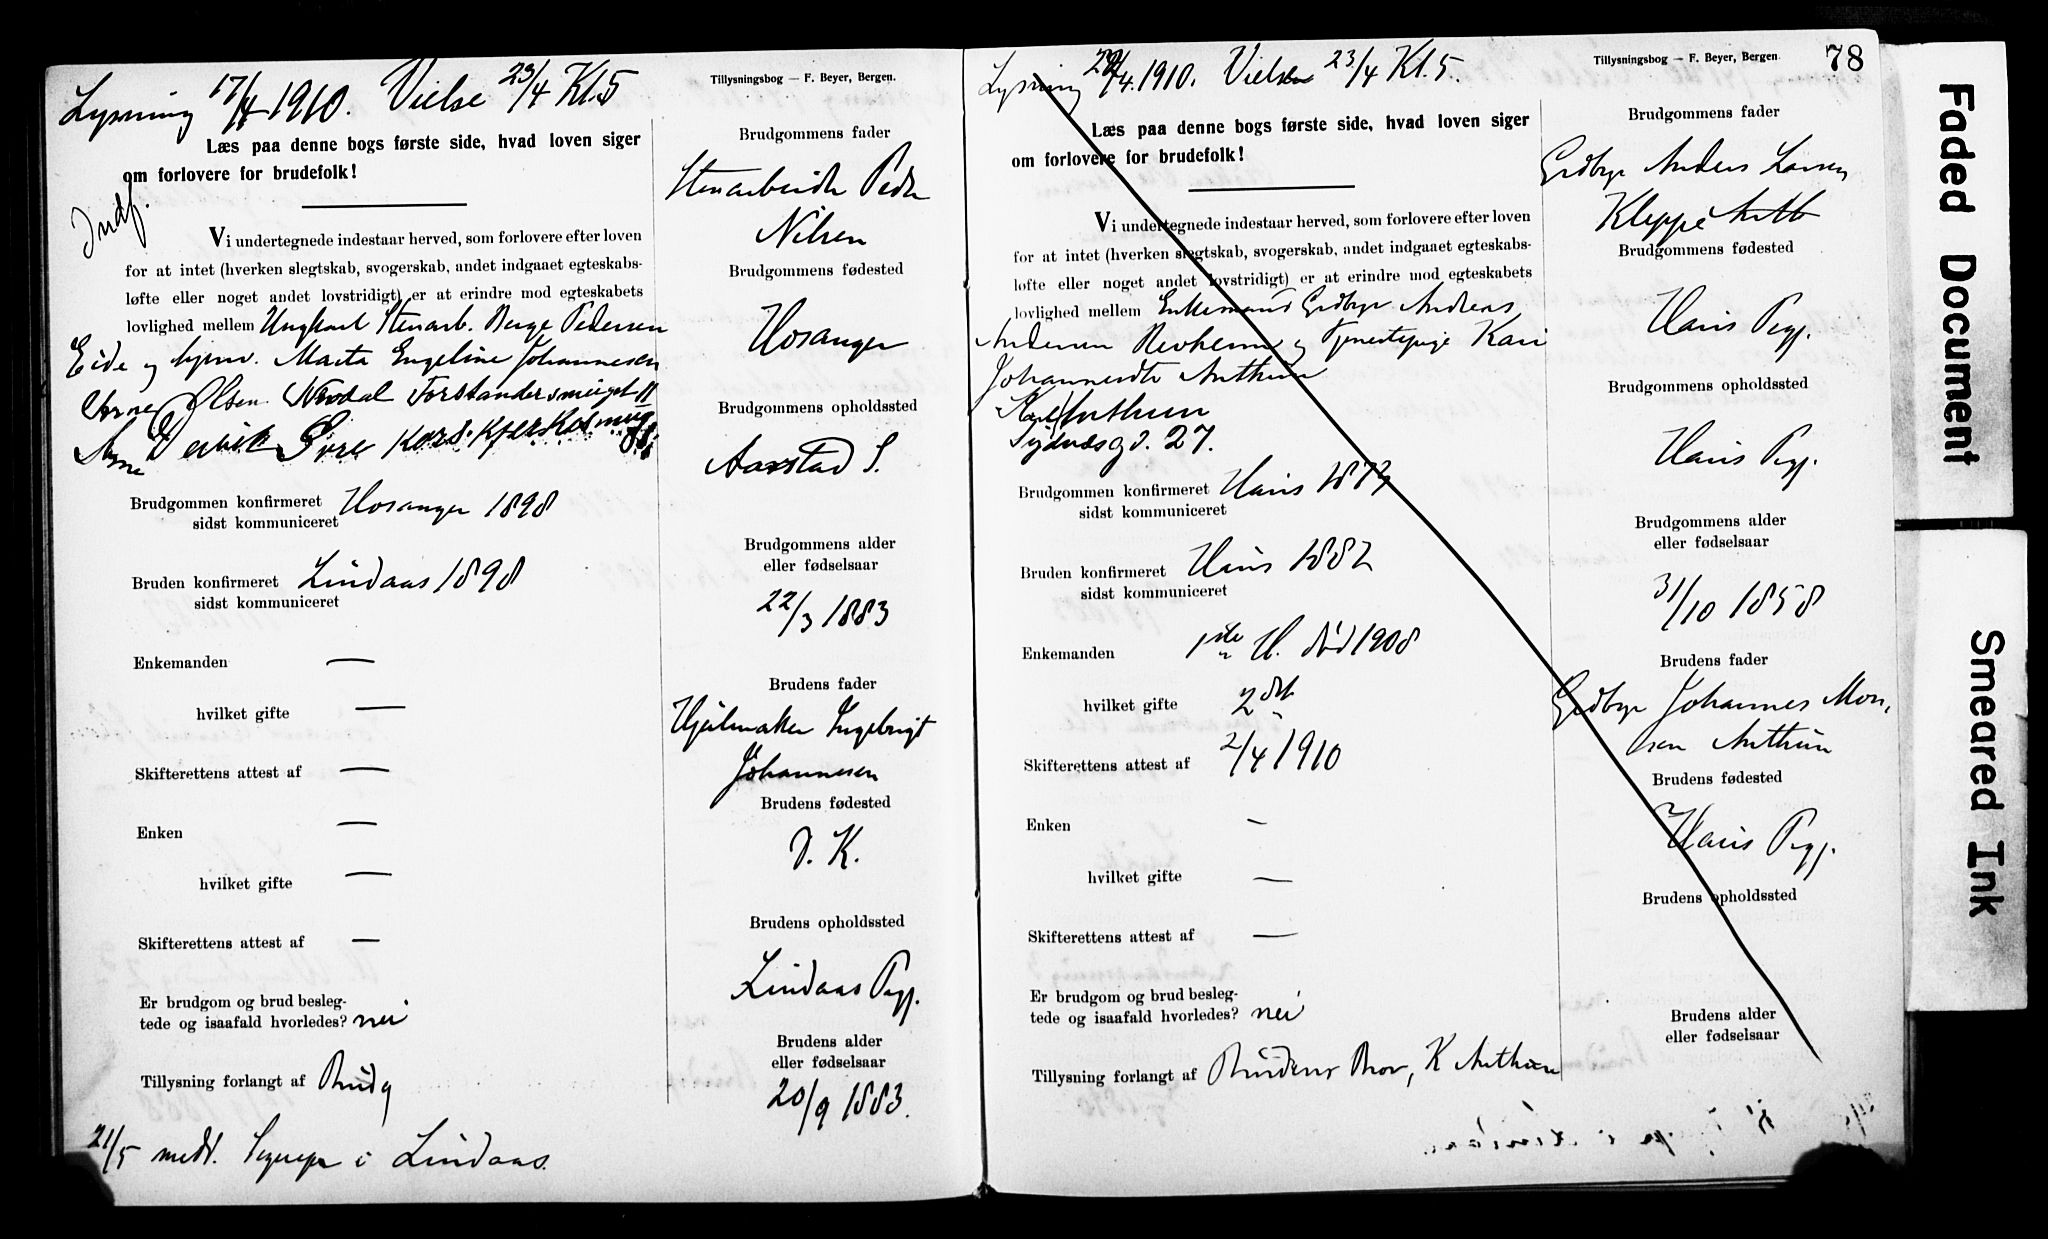 Lysning 17/4 1910. Vielse 23/4 Kl. 5
Tillysningsbog — F. Beyer, Bergen.
Læs paa denne bogs første side, hvad loven siger
om forlovere for brudefolk!
Indf.
Vi undertegnede indestaar herved, som forlovere efter loven
for at intet (hverken slegtskab, svogerskab, andet indgaaet egteskabs-
løfte eller noget andet lovstridigt) er at erindre mod egteskabets
lovlighed mellem Ungkarl Stenarb. Berge Pedersen
Eide og Marta Engeline Johannesen
Arne Olsen Nordal Forstandersmuget 11
Arne
Brudgommen konfirmeret Hosanger 1898
sidst kommuniceret
Bruden konfirmeret Lindaas 1898
sidst kommuniceret
Enkemanden —
hvilket gifte —
Skifterettens attest af —
Enken —
hvilket gifte —
Skifterettens attest af —
Er brudgom og brud besleg-
tede og isaafald hvorledes? nei
Tillysning forlangt af Brudg
21/5 medd. i Lindaas.
Brudgommens fader
Stenarbeider Peder
Nilsen
Brudgommens fødested
Hosanger
Brudgommens opholdssted
Aarstad S.
Brudgommens alder
eller fødselsaar
22/3 1883
Brudens fader
Hjulmaker Ingebrigt
Johannesen
Brudens fødested
D. K.
Brudens opholdssted
Lindaas Pgj.
Brudens alder
eller fødselsaar
20/9 1883.
Lysning /4. 1910. Vielse 23/4 Kl. 5.
Tillysningsbog — F. Beyer, Bergen.
78
Læs paa denne bogs første side, hvad loven siger
om forlovere for brudefolk!
Vi undertegnede indestaar herved, som forlovere efter loven
for at intet (hverken slegtskab, svogerskab, andet indgaaet egteskabs-
løfte eller noget andet lovstridigt) er at erindre mod egteskabets
lovlighed mellem Enkemand Grdbr Andreas
Andersen og Tjenestepige Kari
Johannesdtr Arthun
Karl Arthun
Sydnæsgd. 27.
Brudgommen konfirmeret Haus 1873
sidst kommuniceret
Bruden konfirmeret Haus 1882
sidst kommuniceret
Enkemanden 1ste H. død 1908
hvilket gifte 2det
Skifterettens attest af 2/4 1910
Enken —
hvilket gifte —
Skifterettens attest af —
Er brudgom og brud besleg-
tede og isaafald hvorledes? nei
Tillysning forlangt af Brudens Bror, K Arthun
Brudgommens fader
Grdbr Anders Larsen
Kleppe
Brudgommens fødested
Haus Pgj.
Brudgommens opholdssted
Haus Pgj.
Brudgommens alder
eller fødselsaar
31/10 1858
Brudens fader
Grdbr Johannes Mon-
sen Arthun
Brudens fødested
Haus Pgj.
Brudens opholdssted
Brudens alder
eller fødselsaar
Faded Document
Smeared Ink